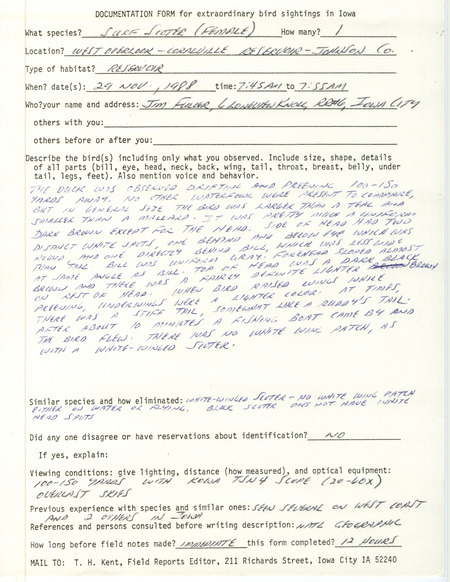 DOCUMENTATION FORM for extraordinary bird sightings in Iowa
What species? SURF SCOTER (FEMALE) How many? 1
Location? WEST OVERLOOK - CORALVILLE RESERVOIR - JOHNSON CO.
Type of habitat? RESERVOIR
When? date(s): 29 NOV., 1988 time: 7:45AM to 7:55AM
Who? your name and address: JIM FULLER, 6 LONGVIEW KNOLL RR#6, IOWA CITY
others with you:
others before or after you:
Describe the bird(s) including only what you observed. Include size, shape, details
of all parts (bill, eye, head, neck, back, wing, tail, throat, breast, belly, under
tail, legs, feet). Also mention voice and behavior.
THE DUCK WAS OBSERVED DRIFTING AND PREENING 100-150
YARDS AWAY. NO OTHER WATERFOWL WERE PRESENT TO COMPARE,
BUT IN GENERAL SIZE THE BIRD WAS LARGER THAN A TEAL AND
SMALLER THAN A MALLARD. IT WAS PRETTY MUCH A UNIFORM
DARK BROWN EXCEPT FOR THE HEAD. SIDE OF HEAD HAD TWO
DISTINCT WHITE SPOTS, ONE BEHIND AND BELOW EYE WHICH WAS
ROUND, AND ONE DIRECTLY BEHIND BILL, WHICH WAS LESS WIDE
THAN TALL. BILL WAS UNIFORM GRAY. FOREHEAD SLOPED ALMOST
AT SAME ANGLE AS BILL. TOP OF HEAD WAS A DARK BLACK
BROWN AND THERE WAS A FAIRLY DEFINITE LIGHTER BROWN
ON REST OF HEAD. WHEN BIRD RAISED WINGS WHILE
PREENING, UNDERWINGS WERE A LIGHTER COLOR. AT TIMES,
THERE WAS A STIFF TAIL, SOMEWHAT LIKE A RUDDY'S TAIL.
AFTER ABOUT 10 MINUTES A FISHING BOAT CAME BY AND
THE BIRD FLEW. THERE WAS NO WHITE WING PATCH, AS
WITH A WHITE-WINGED SCOTER.
Similar species and how eliminated: WHITE-WINGED SCOTER - NO WHITE WING PATCH
EITHER ON WATER OR FLYING. BLACK SCOTER DOES NOT HAVE WHITE
HEAD SPOTS
Did any one disagree or have reservations about identification? NO
If yes, explain:
Viewing conditions: give lighting, distance (how measured), and optical equipment:
100-150 YARDS WITH KOWA TSN4 SCOPE (20-60X)
OVERCAST SKIES
Previous experience with species and similar ones: SEEN SEVERAL ON WEST COAST
AND 2 OTHERS IN IOWA
References and persons consulted before writing description: NATL GEOGRAPHIC
How long before field notes made? IMMEDIATE this form completed? 12 HOURS
MAIL TO: T. H. Kent, Field Reports Editor, 211 Richards Street, Iowa City IA 52240